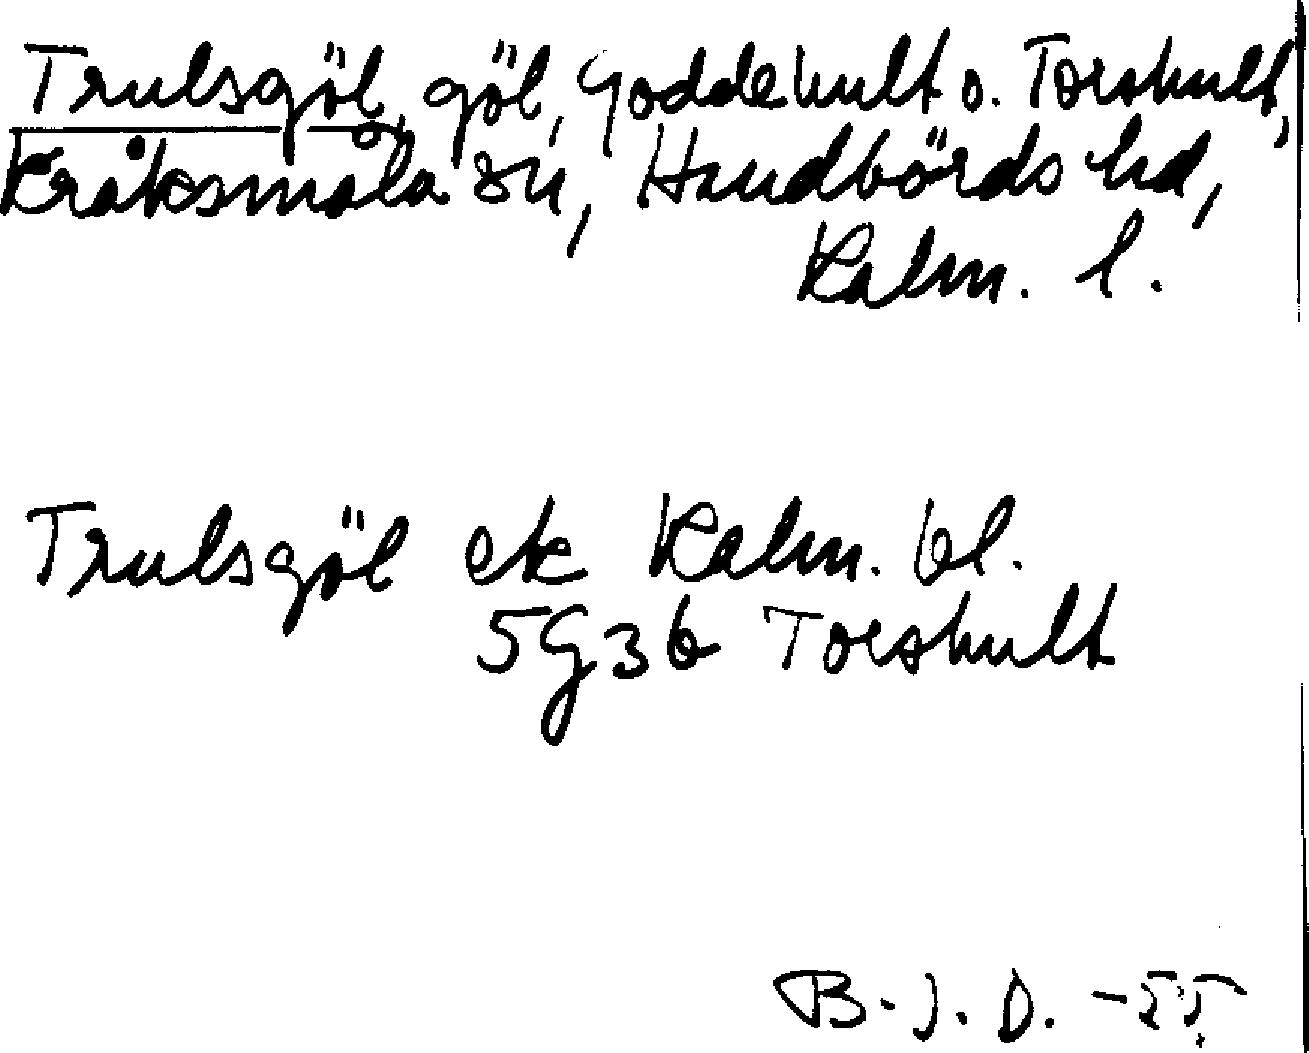 Trulsgöl, göl, Goddehult o. Torshult,
Kråksmåla sn, Handbörds hd,
Kalm. l.
Trulsgöl ek Kalm. bl.
5G3b Torshult
B.J.D. -55